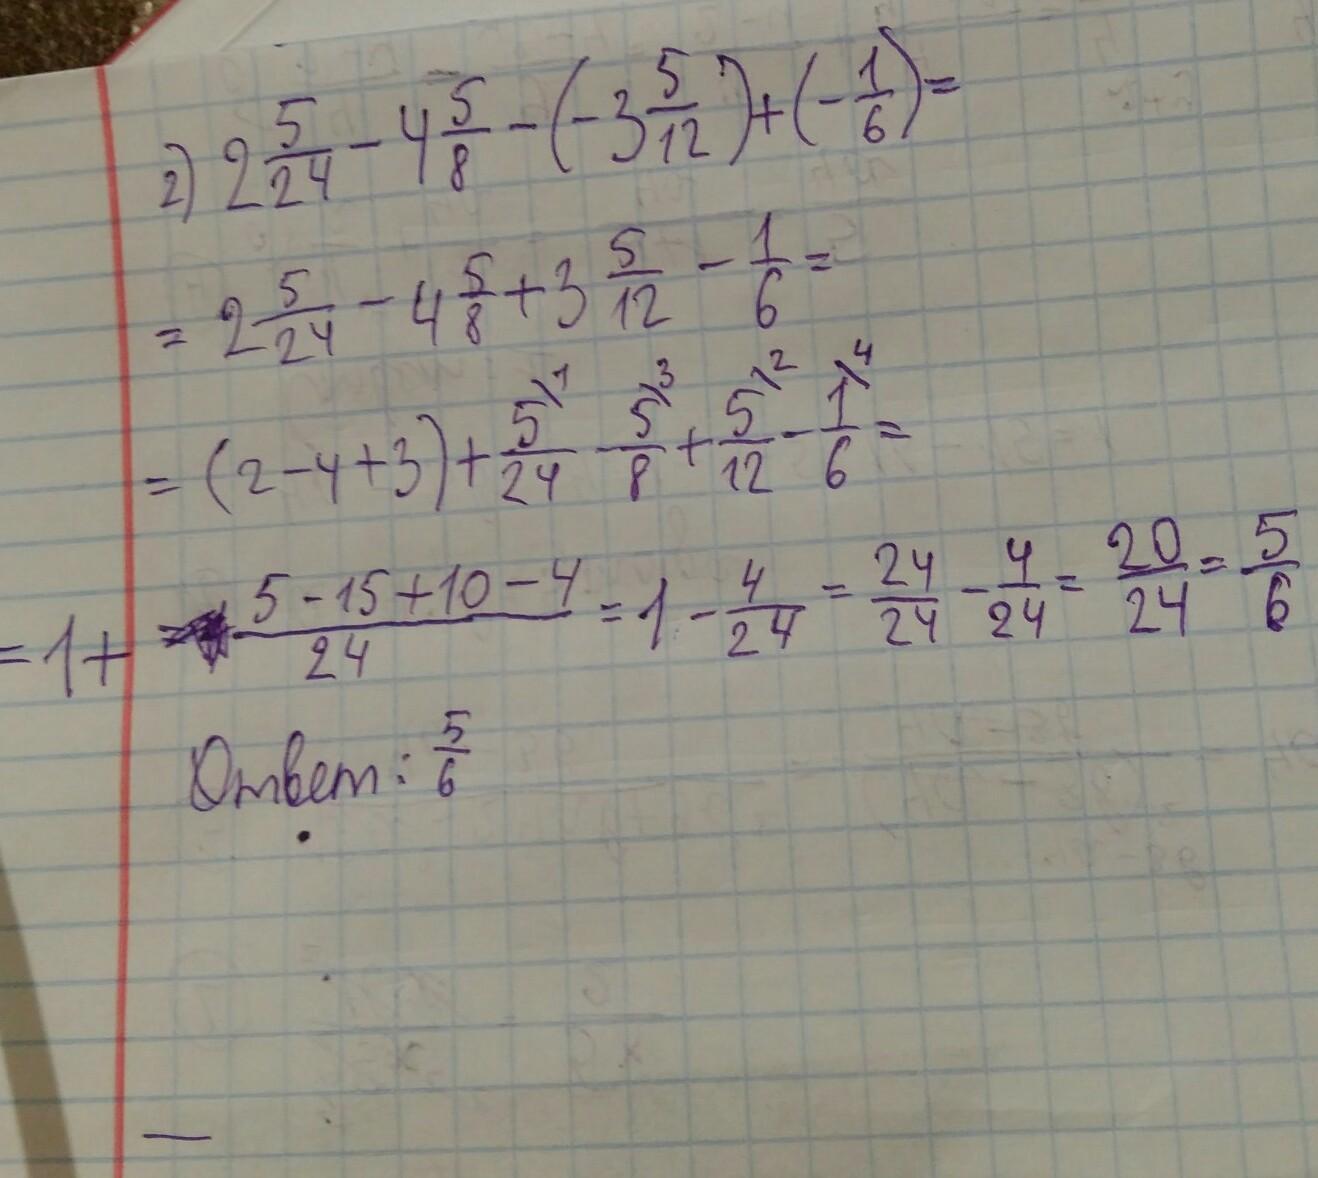 2) 2 5/24 - 4 5/8 - (-3 5/12) + (-1/6) =
= 2 5/24 - 4 5/8 + 3 5/12 - 1/6 =
= (2-4+3) + 5\1/24 - 5\3/8 + 5\2/12 - 1\4/6 =
= 1 + (5-15+10-4)/24 = 1 - 4/24 = 24/24 - 4/24 = 20/24 = 5/6
Ответ: 5/6